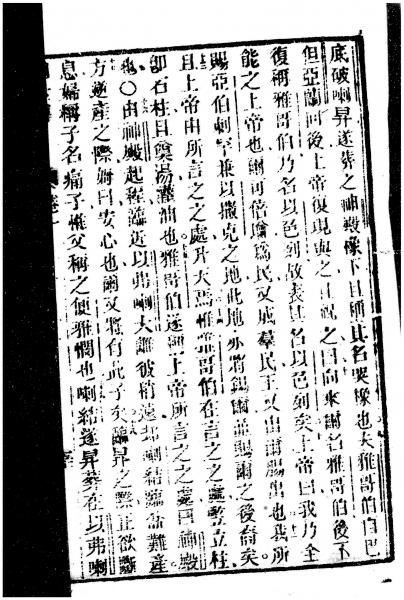 底破喇昇遂葬之神殿橡下且稱其名哭橡也夫雅哥伯自巴
但亞蘭回後上帝復現與之且祝之曰向來爾名雅哥伯後不
復稱雅哥伯乃名以色列故表其名以色列矣上帝曰我乃全
能之上帝也爾可倍增為民又成羣民王又由爾腸出也我所
賜亞伯喇罕兼以撒克之地此地亦將錫爾並賜爾之後裔矣
且上帝由所言之之處升天焉惟雅哥伯在言之之處豎立柱
即石柱且奠湯灌油也雅哥伯遂稱上帝所言之之處曰神殿
也〇由神殿起程臨近以弗喇大離彼稍遠却喇結臨 難產
方遂產之際 曰安心也爾又將有此子矣臨昇之際正欲斷
息婦稱子名痛子惟父稱之便雅憫也喇結遂昇葬在以弗喇
卷一